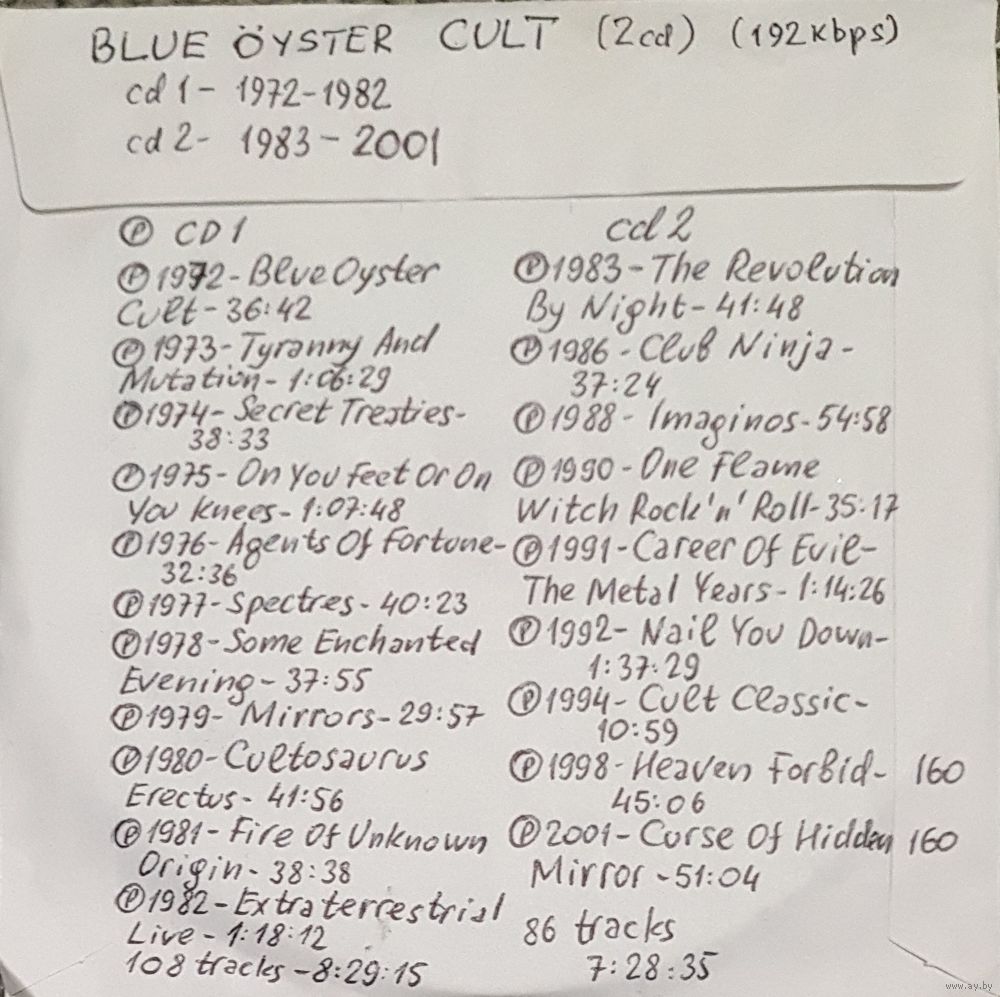 BLUE ÖYSTER CULT (2cd) (192kbps)
cd 1 - 1972-1982
cd 2 - 1983 - 2001
Ⓟ CD 1
Ⓟ 1972 - Blue Oyster
Cult - 36:42
Ⓟ 1973 - Tyranny And
Mutation - 1:06:29
Ⓟ 1974 - Secret Tresties -
38:33
Ⓟ 1975 - On You Feet Or On
You Knees - 1:07:48
Ⓟ 1976 - Agents Of Fortune -
32:36
Ⓟ 1977 - Spectres - 40:23
Ⓟ 1978 - Some Enchanted
Evening - 37:55
Ⓟ 1979 - Mirrors - 29:57
Ⓟ 1980 - Cultosaurus
Erectus - 41:56
Ⓟ 1981 - Fire Of Unknown
Origin - 38:38
Ⓟ 1982 - Extraterrestrial
Live - 1:18:12
108 tracks - 8:29:15
cd 2
Ⓟ 1983 - The Revolution
By Night - 41:48
Ⓟ 1986 - Club Ninja -
37:24
Ⓟ 1988 - Imaginos - 54:58
Ⓟ 1990 - One Flame
Witch Rock'n' Roll - 35:17
Ⓟ 1991 - Career Of Evil -
The Metal Years - 1:14:26
Ⓟ 1992 - Nail You Down -
1:37:29
Ⓟ 1994 - Cult Classic -
10:59
Ⓟ 1998 - Heaven Forbid - 160
45:06
Ⓟ 2001 - Curse Of Hidden 160
Mirror - 51:04
86 tracks
7:28:35
www.ay.by